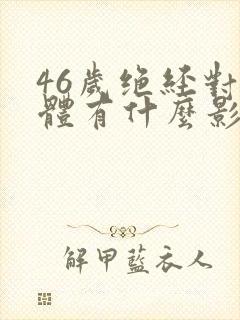 46歲绝經對
體有什麼影
解甲藍衣人